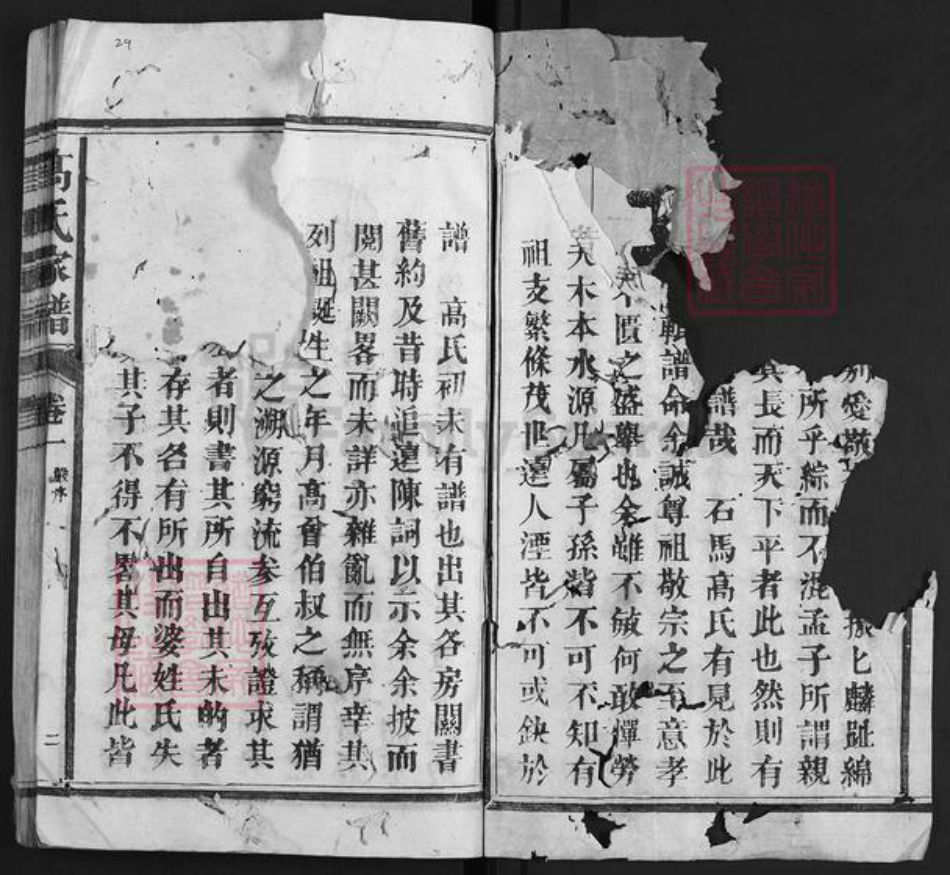 別愛敬
振匕麟趾綿
所乎綜而不混孟子所謂親
其長而天下平者此也然則有
譜哉 石馬高氏有見於此
輯譜命余誠尊祖敬宗之至意孝
不匱之盛舉也余雖不敏何敢憚勞
夫木本水源凡屬子孫皆不可不知有
祖支繁條茂世遠人湮皆不可或鈌於
譜 高氏初未有譜也出其各房關書
舊約及昔時追遠陳詞以示余余披而
閱甚闕畧而未詳亦雜亂而無序幸其
列祖誕生之年月高曾伯叔之稱謂猶
之溯源窮流參互攷證求其
者則書其所自出其未的者
存其名有所出而婆姓氏失
其子不得不畧其母凡此皆
高氏家譜
卷一
二
29